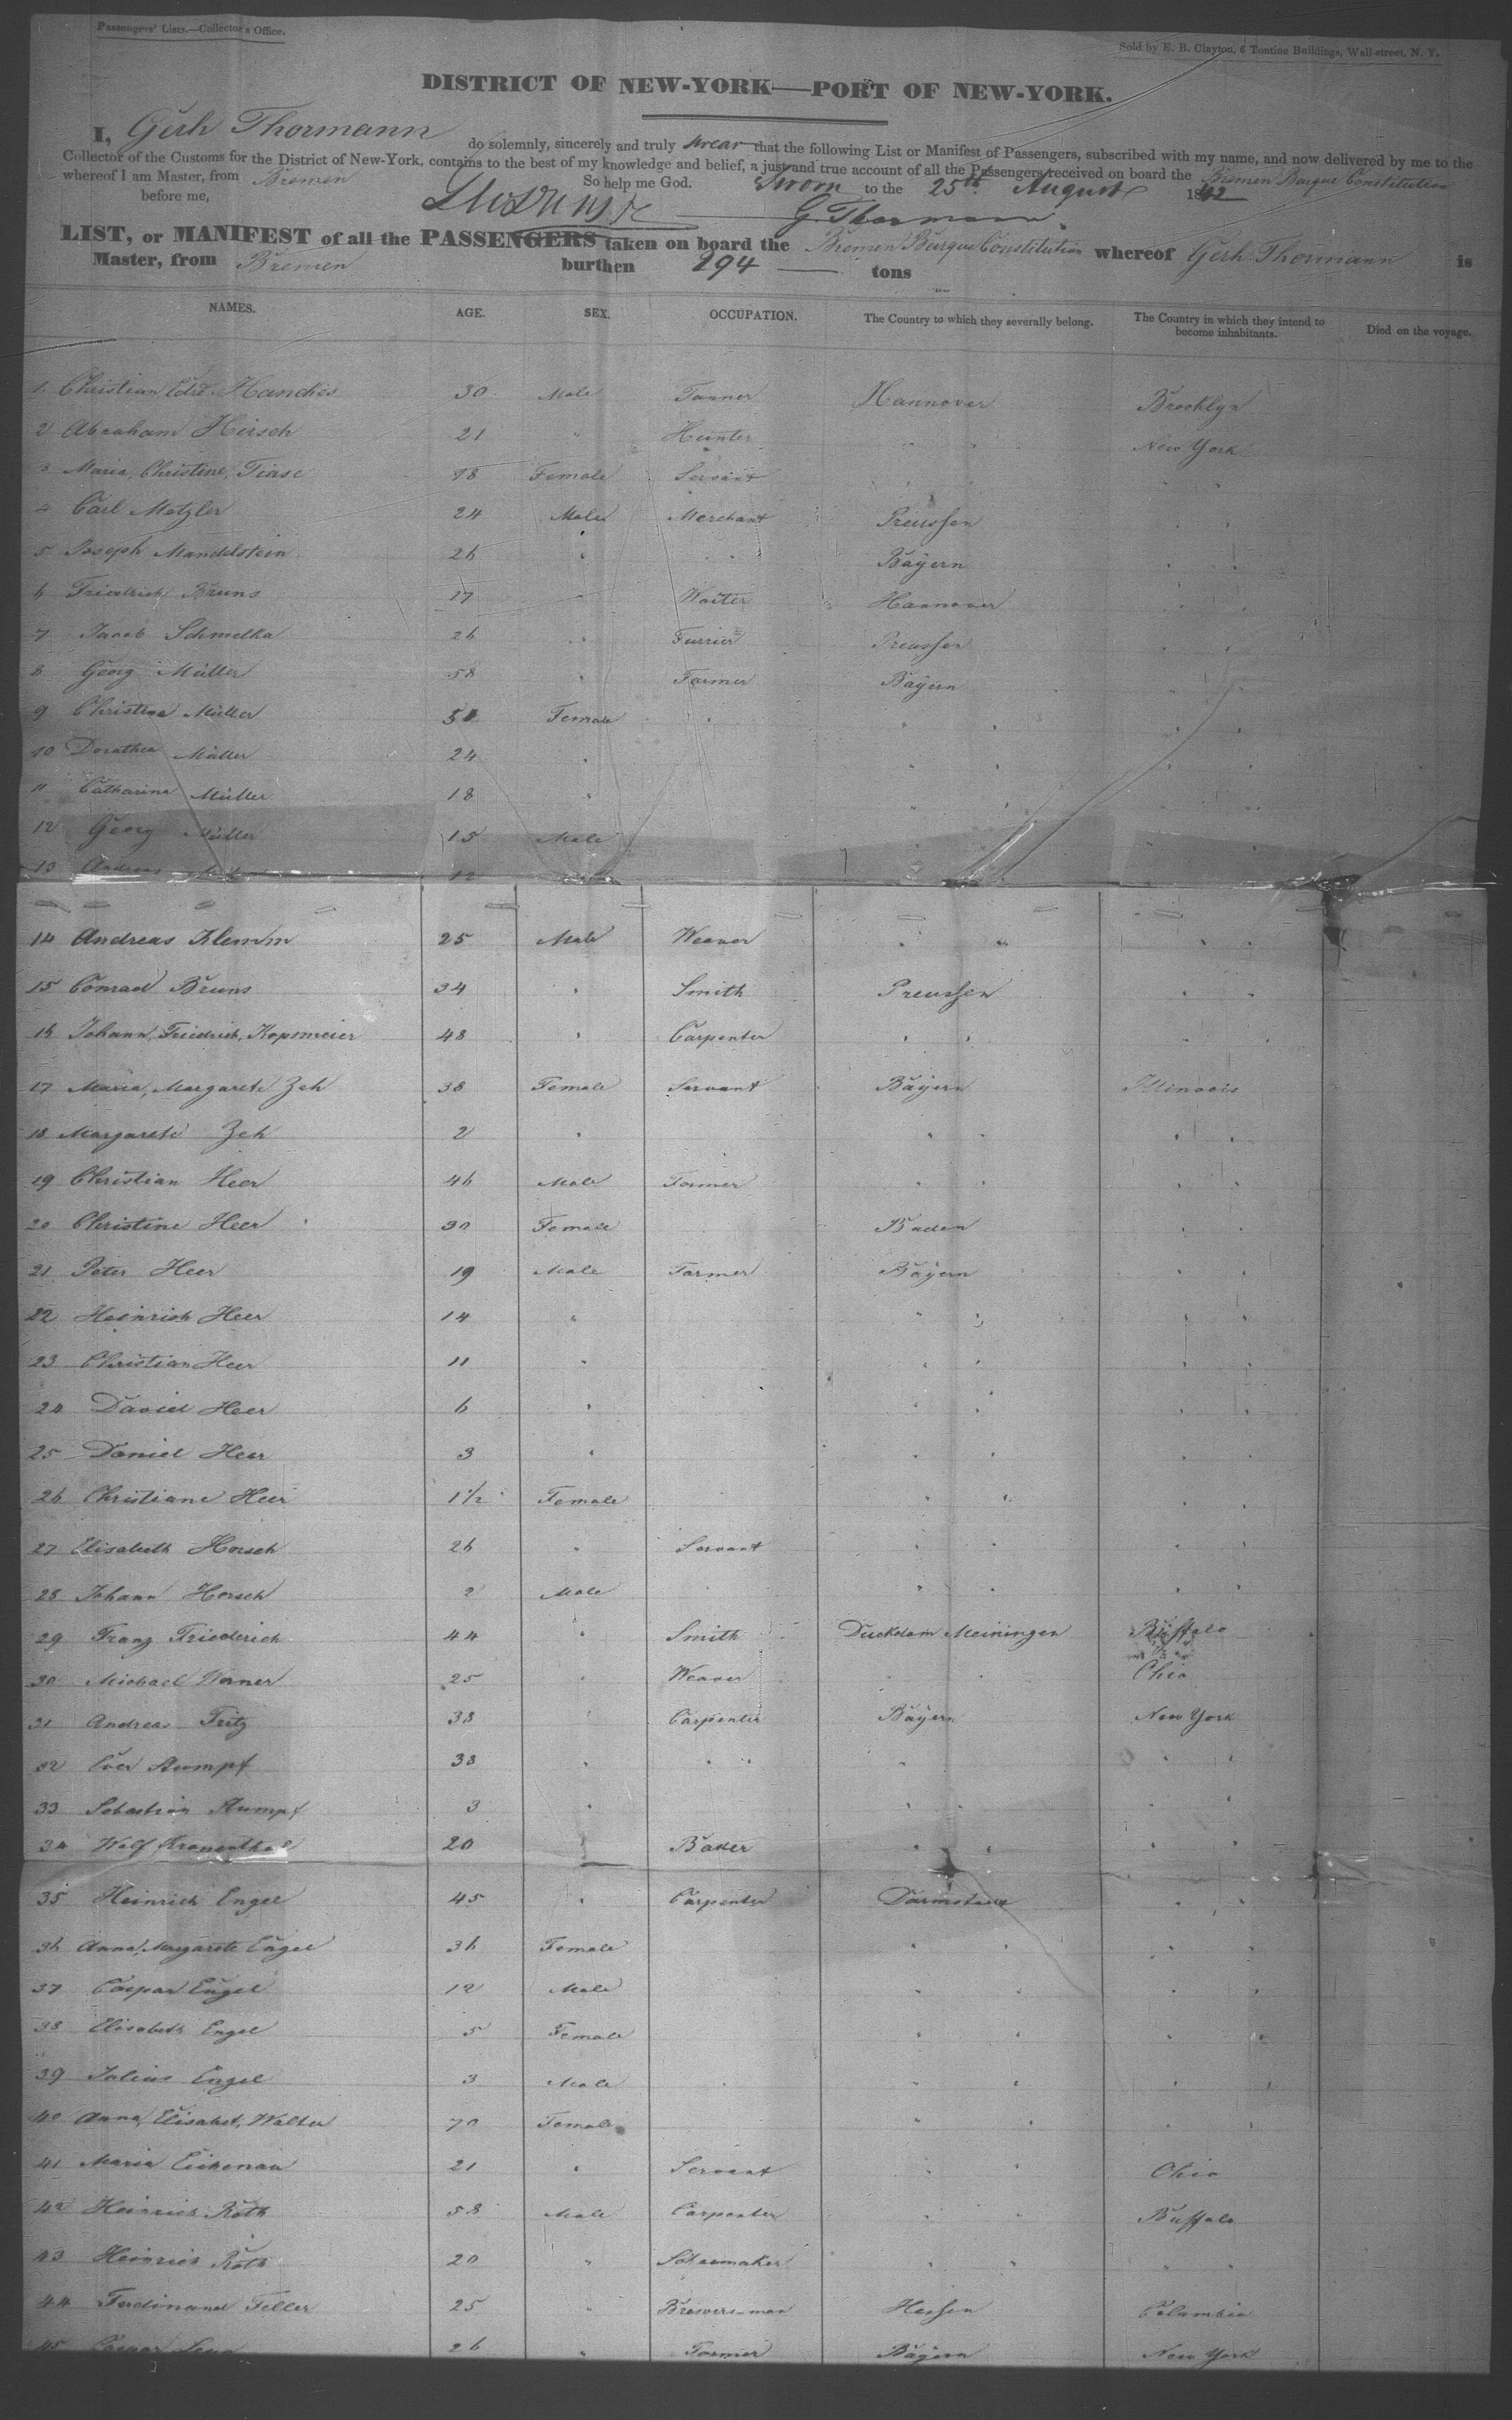 Passengers' Lists.—Collector's Office.
Sold by E. B. Clayton, 6 Tontine Buildings, Wall-street, N. Y.
DISTRICT OF NEW-YORK—PORT OF NEW-YORK.
I, Gerh Thormann do solemnly, sincerely and truly swear that the following List or Manifest of Passengers, subscribed with my name, and now delivered by me to the
Collector of the Customs for the District of New-York, contains to the best of my knowledge and belief, a just and true account of all the Passengers received on board the Bremen Barque Constitution
whereof I am Master, from Bremen So help me God. Sworn to the 25th August 1842
before me, G. Thormann
LIST, or MANIFEST of all the PASSENGERS taken on board the Bremen Barque Constitution whereof Gerh. Thormann is
Master, from Bremen burthen 294 — tons
NAMES. AGE. SEX. OCCUPATION. The Country to which they severally belong. The Country in which they intend to become inhabitants. Died on the voyage.
1 Christian Edrd. Hanches 30 Male Tanner Hannover Brooklyn
2 Abraham Hirsch 21 " Hunter " " New York
3 Maria, Christine, Tiase 18 Female Servant " " " "
4 Carl Metzler 24 Male Merchant Preussen " "
5 Joseph Mandelstein 26 " " " Bayern " "
6 Friedrich Bruns 17 " Waiter Hannover " "
7 Jacob Schmelka 26 " Furrier Preussen " "
8 Georg Müller 58 " Farmer Bayern " "
9 Christina Müller 51 Female " " " " "
10 Dorathea Müller 24 " " " " "
11 Catharina Müller 18 " " " " "
12 Georg Müller 15 Male " " " "
13 Andreas 12
14 Andreas Klemm 25 Male Weaver " " " "
15 Conrad Bruns 34 " Smith Preussen " "
16 Johann, Friedrich, Kopsmeier 48 " Carpenter " " " "
17 Maria, Margarete Zeh 38 Female Servant Bayern Illinoois
18 Margarete Zeh 2 " " " " "
19 Christian Heer 46 Male Farmer " " " "
20 Christine Heer 30 Female Baden " "
21 Peter Heer 19 Male Farmer Bayern " "
22 Heinrich Heer 14 " " " " "
23 Christian Heer 11 " " " " "
24 David Heer 6 " " " " "
25 Daniel Heer 3 " " " " "
26 Christiane Heer 1 1/2 Female " " " "
27 Elisabeth Horsch 26 " Servant " " " "
28 Johann Horsch 2 Male " " " "
29 Franz Friederich 44 " Smith Duckdom Meiningen Buffalo
30 Michael Werner 25 " Weaver " " Ohio
31 Andreas Fritz 38 " Carpenter Bayern New York
32 Ever Stumpf 38 " " " " " "
33 Sebastian Stumpf 3 " " " " "
34 Wolf Kronenthal 20 " Baker " " " "
35 Heinrich Engel 45 " Carpenter Darmstadt " "
36 Anna, Margarete Engel 36 Female " " " "
37 Caspar Engel 12 Male " " " "
38 Elisabeth Engel 5 Female " " " "
39 Julius Engel 3 Male " " " "
40 Anna, Elisabet, Walter 70 Female " " " "
41 Maria Eichenau 21 " Servant " " Ohio
42 Heinrich Roth 58 Male Carpenter " " Buffalo
43 Heinrich Roth 20 " Schoemaker " " " "
44 Ferdinand Feller 25 " Brewers-man Hessen Columbia
45 Caspar 26 " Farmer Bayern New York